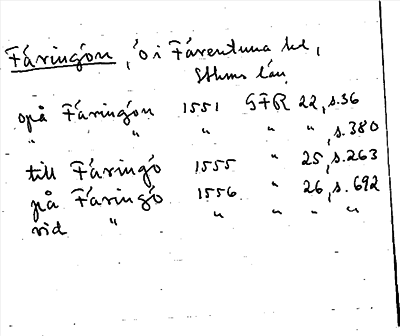 Färingön, ö i Färentuna hd,
Sthms län
opå Färingön 1551 GFR 22, s. 36
" " " " ", s. 380
till Färingö 1555 " 25, s. 263
på Färingö 1556 " 26, s. 692
vid " " " " "